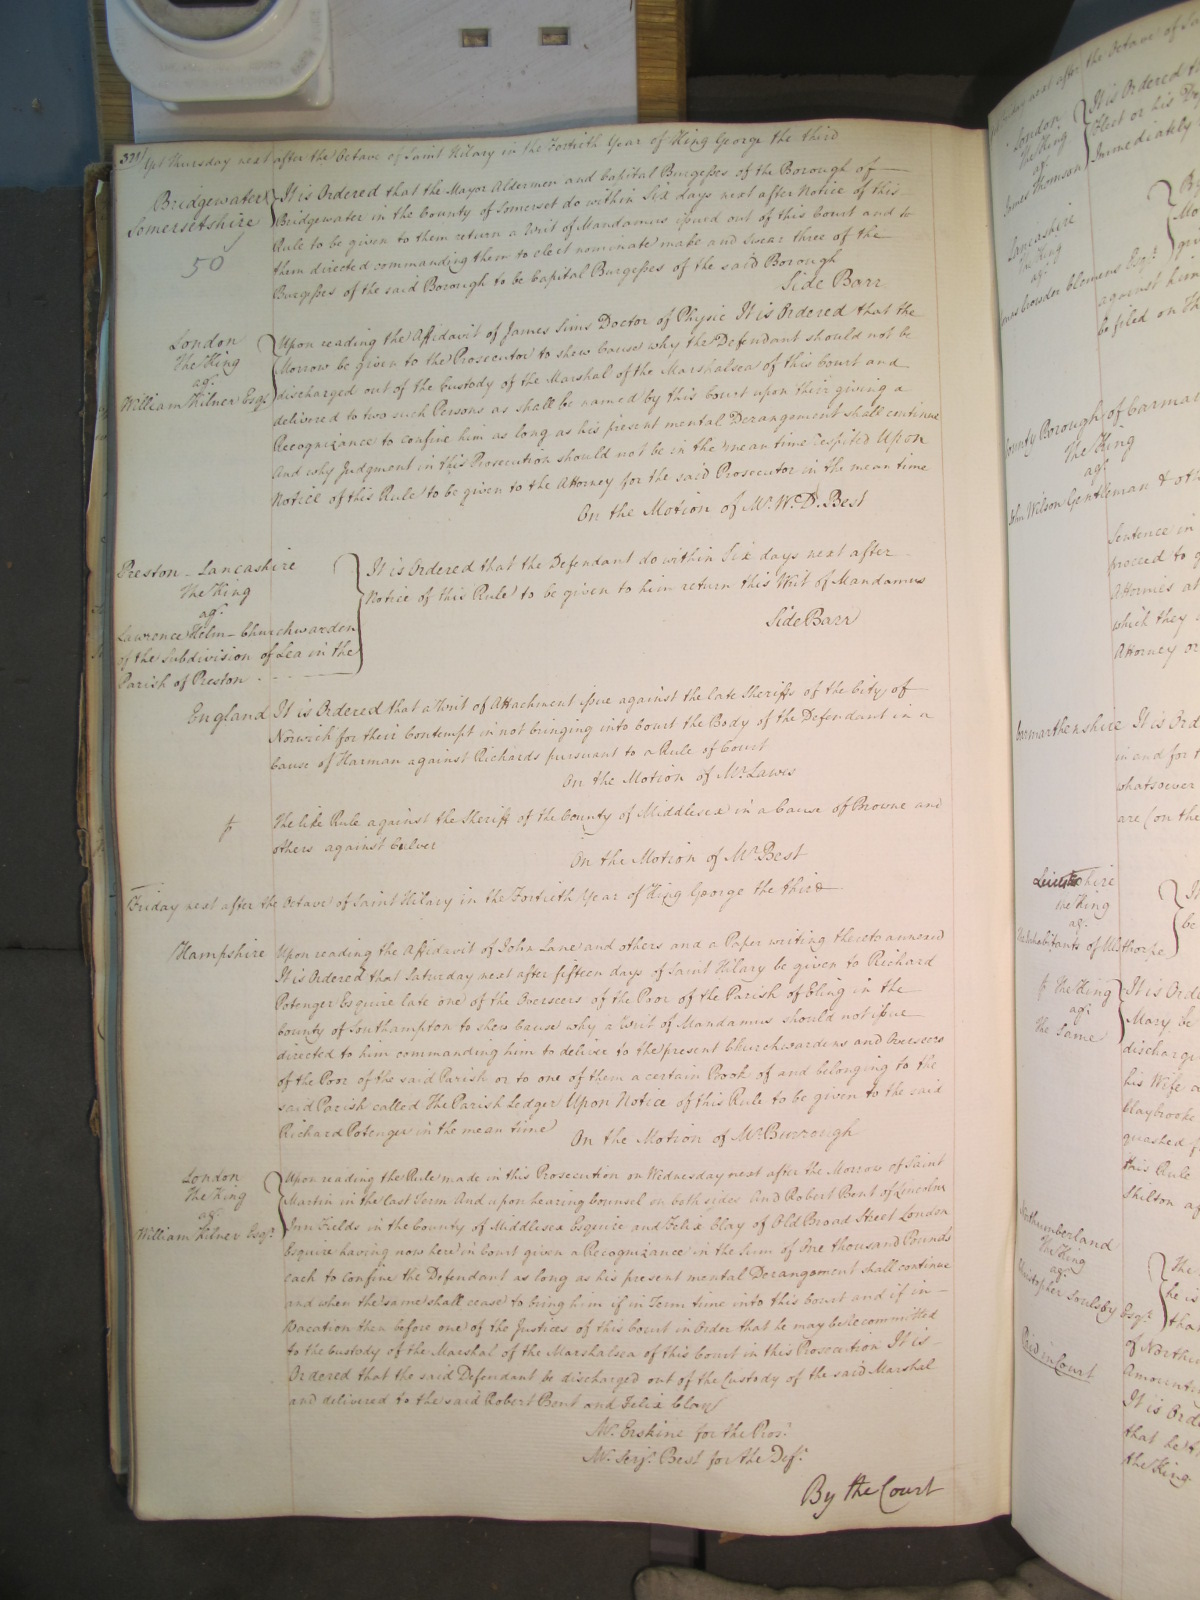 321 Yet Thursday next after the Octave of Saint Hilary in the Fortieth Year of King George the third
Bridgewater
Somersetshire
50
It is Ordered that the Mayor Aldermen and Capital Burgesses of the Borough of
Bridgewater in the County of Somerset do within Six days next after Notice of this
Rule to be given to them return a Writ of Mandamus issued out of this Court and to
them directed commanding them to elect nominate make and swear three of the
Burgesses of the said Borough to be Capital Burgesses of the said Borough
Side Barr
London
The King
agt.
William Kilner Esqr.
Upon reading the Affidavit of James Sims Doctor of Physic It is Ordered that the
Morrow be given to the Prosecutor to shew Cause why the Defendant should not be
discharged out of the Custody of the Marshal of the Marshalsea of this Court and
delivered to two such Persons as shall be named by this Court upon their giving a
Recognizance to confine him as long as his present mental Derangement shall continue
And why Judgment in this Prosecution should not be in the mean time respited Upon
Notice of this Rule to be given to the Attorney for the said Prosecutor in the mean time
On the Motion of Mr. W. D. Best
Preston - Lancashire
The King
agt.
Lawrence Helm - Churchwarden
of the Subdivision of Lea in the
Parish of Preston
It is Ordered that the Defendant do within Six days next after
Notice of this Rule to be given to him return this Writ of Mandamus
Side Barr
England It is Ordered that a Writ of Attachment issue against the late Sheriffs of the City of
Norwich for their Contempt in not bringing into Court the Body of the Defendant in a
Cause of Harman against Richards pursuant to a Rule of Court
On the Motion of Mr. Lawes
The like Rule against the Sheriff of the County of Middlesex in a Cause of Browne and
others against Culver
On the Motion of Mr. Best
Friday next after the Octave of Saint Hilary in the Fortieth Year of King George the third
Hampshire Upon reading the Affidavit of John Lane and others and a Paper writing thereto annexed
It is Ordered that Saturday next after fifteen days of Saint Hilary be given to Richard
Potenger Esquire late one of the Overseers of the Poor of the Parish of Eling in the
County of Southampton to shew Cause why a Writ of Mandamus should not issue
directed to him commanding him to deliver to the present Churchwardens and Overseers
of the Poor of the said Parish or to one of them a certain Book of and belonging to the
said Parish called The Parish Ledger Upon Notice of this Rule to be given to the said
Richard Potenger in the mean time
On the Motion of Mr. Burrough
London
The King
agt.
William Kilner Esqr.
Upon reading the Rule made in this Prosecution on Wednesday next after the Morrow of Saint
Martin in the last Term And upon hearing Counsel on both sides And Robert Bent of Lincolns
Inn Fields in the County of Middlesex Esquire and Felix Clay of Old Broad Street London
Esquire having now here in Court given a Recognizance in the Sum of One thousand Pounds
each to confine the Defendant as long as his present mental Derangement shall continue
and when the same shall cease to bring him if in Term time into this Court and if in
Vacation then before one of the Justices of this Court in Order that he may be recommitted
to the Custody of the Marshal of the Marshalsea of this Court in this Prosecution It is
Ordered that the said Defendant be discharged out of the Custody of the said Marshal
and delivered to the said Robert Bent and Felix Clay
Mr. Erskine for the Pros.
Mr. Serjt. Best for the Deft.
By the Court
London
The King
agt.
James Thomson
It is Ordered
Immediately
Lancashire
The King
agt.
Clemens Esqr.
against him
be filed on th
County Borough of Carmar
The King
agt.
John Wilson Gentleman & oth
Sentence in
proceed to
Attornies at
which they
Attorney or
Carmarthenshire It is Ord
in and for t
whatsoever
are (on the
The King
agt.
The Inhabitants of Ullsthorpe
be
The King
agt.
The Same
It is Orde
Mary be
discharge
his Wife
Claybrooke
quashed
this Rule
Skilton
Northumberland
The King
agt.
Christopher Soulsby Esqr.
The
he is
that
of North
Paid in Court
Amount
It is Orde
that he
the King